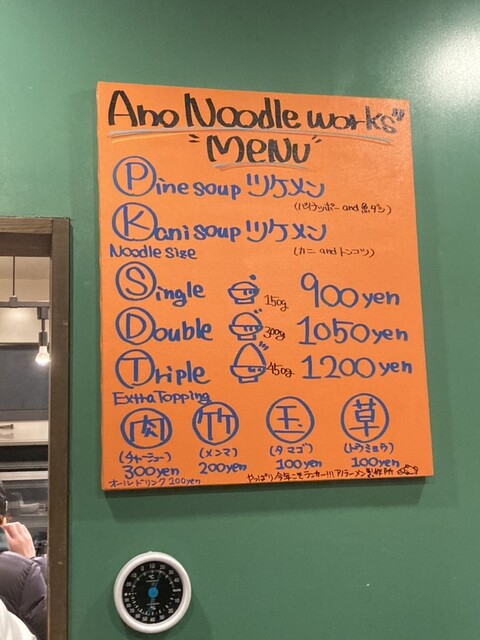 Ano Noodle works"
"MENU"
Pine soup ツケメン
(パイナッポー and 魚ダシ)
Kani soup ツケメン
(カニ and トンコツ)
Noodle Size
Single 150g 900yen
Double 300g 1050yen
Triple 450g 1200yen
Extra Topping
肉 竹 玉 草
(チャーシュー) (メンマ) (タマゴ) (トウミョウ)
300yen 200yen 100yen 100yen
オールドリンク 200yen
やっぱり今年こそランナー!!!